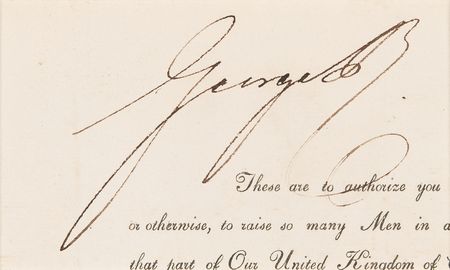 George R
These are to authorize you
or otherwise, to raise so many Men in a
that part of Our United Kingdom of